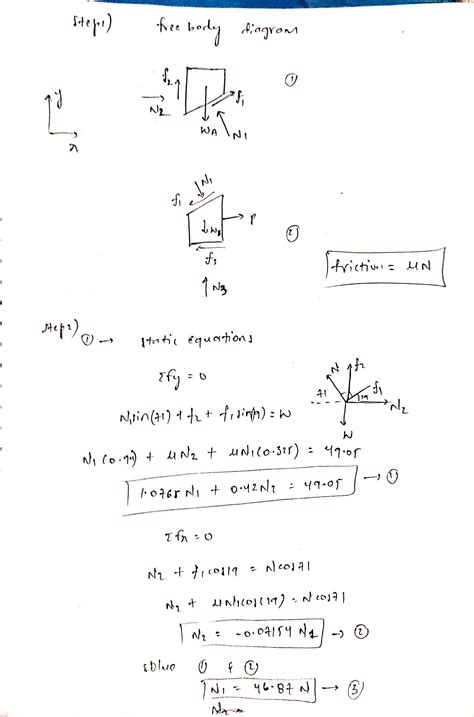 Step1) free body diagram
f2
f1
①
y
N2
WA
N1
x
N1
f1
P
WB
②
f3
N3
friction = μN
Step2) ① → static equations
Σfy = 0
N
f2
f1
71
19
N2
N1sin(71) + f2 + f1sin(19) = W
W
N1(0.94) + μN2 + μN1(0.325) = 49.05
1.0765 N1 + 0.42N2 = 49.05 → ①
Σfx = 0
N2 + f1cos19 = Ncos71
N2 + μN1cos(19) = Ncos71
N2 = -0.07154 N1 → ②
solve ① & ②
N1 = 46.87 N → ③